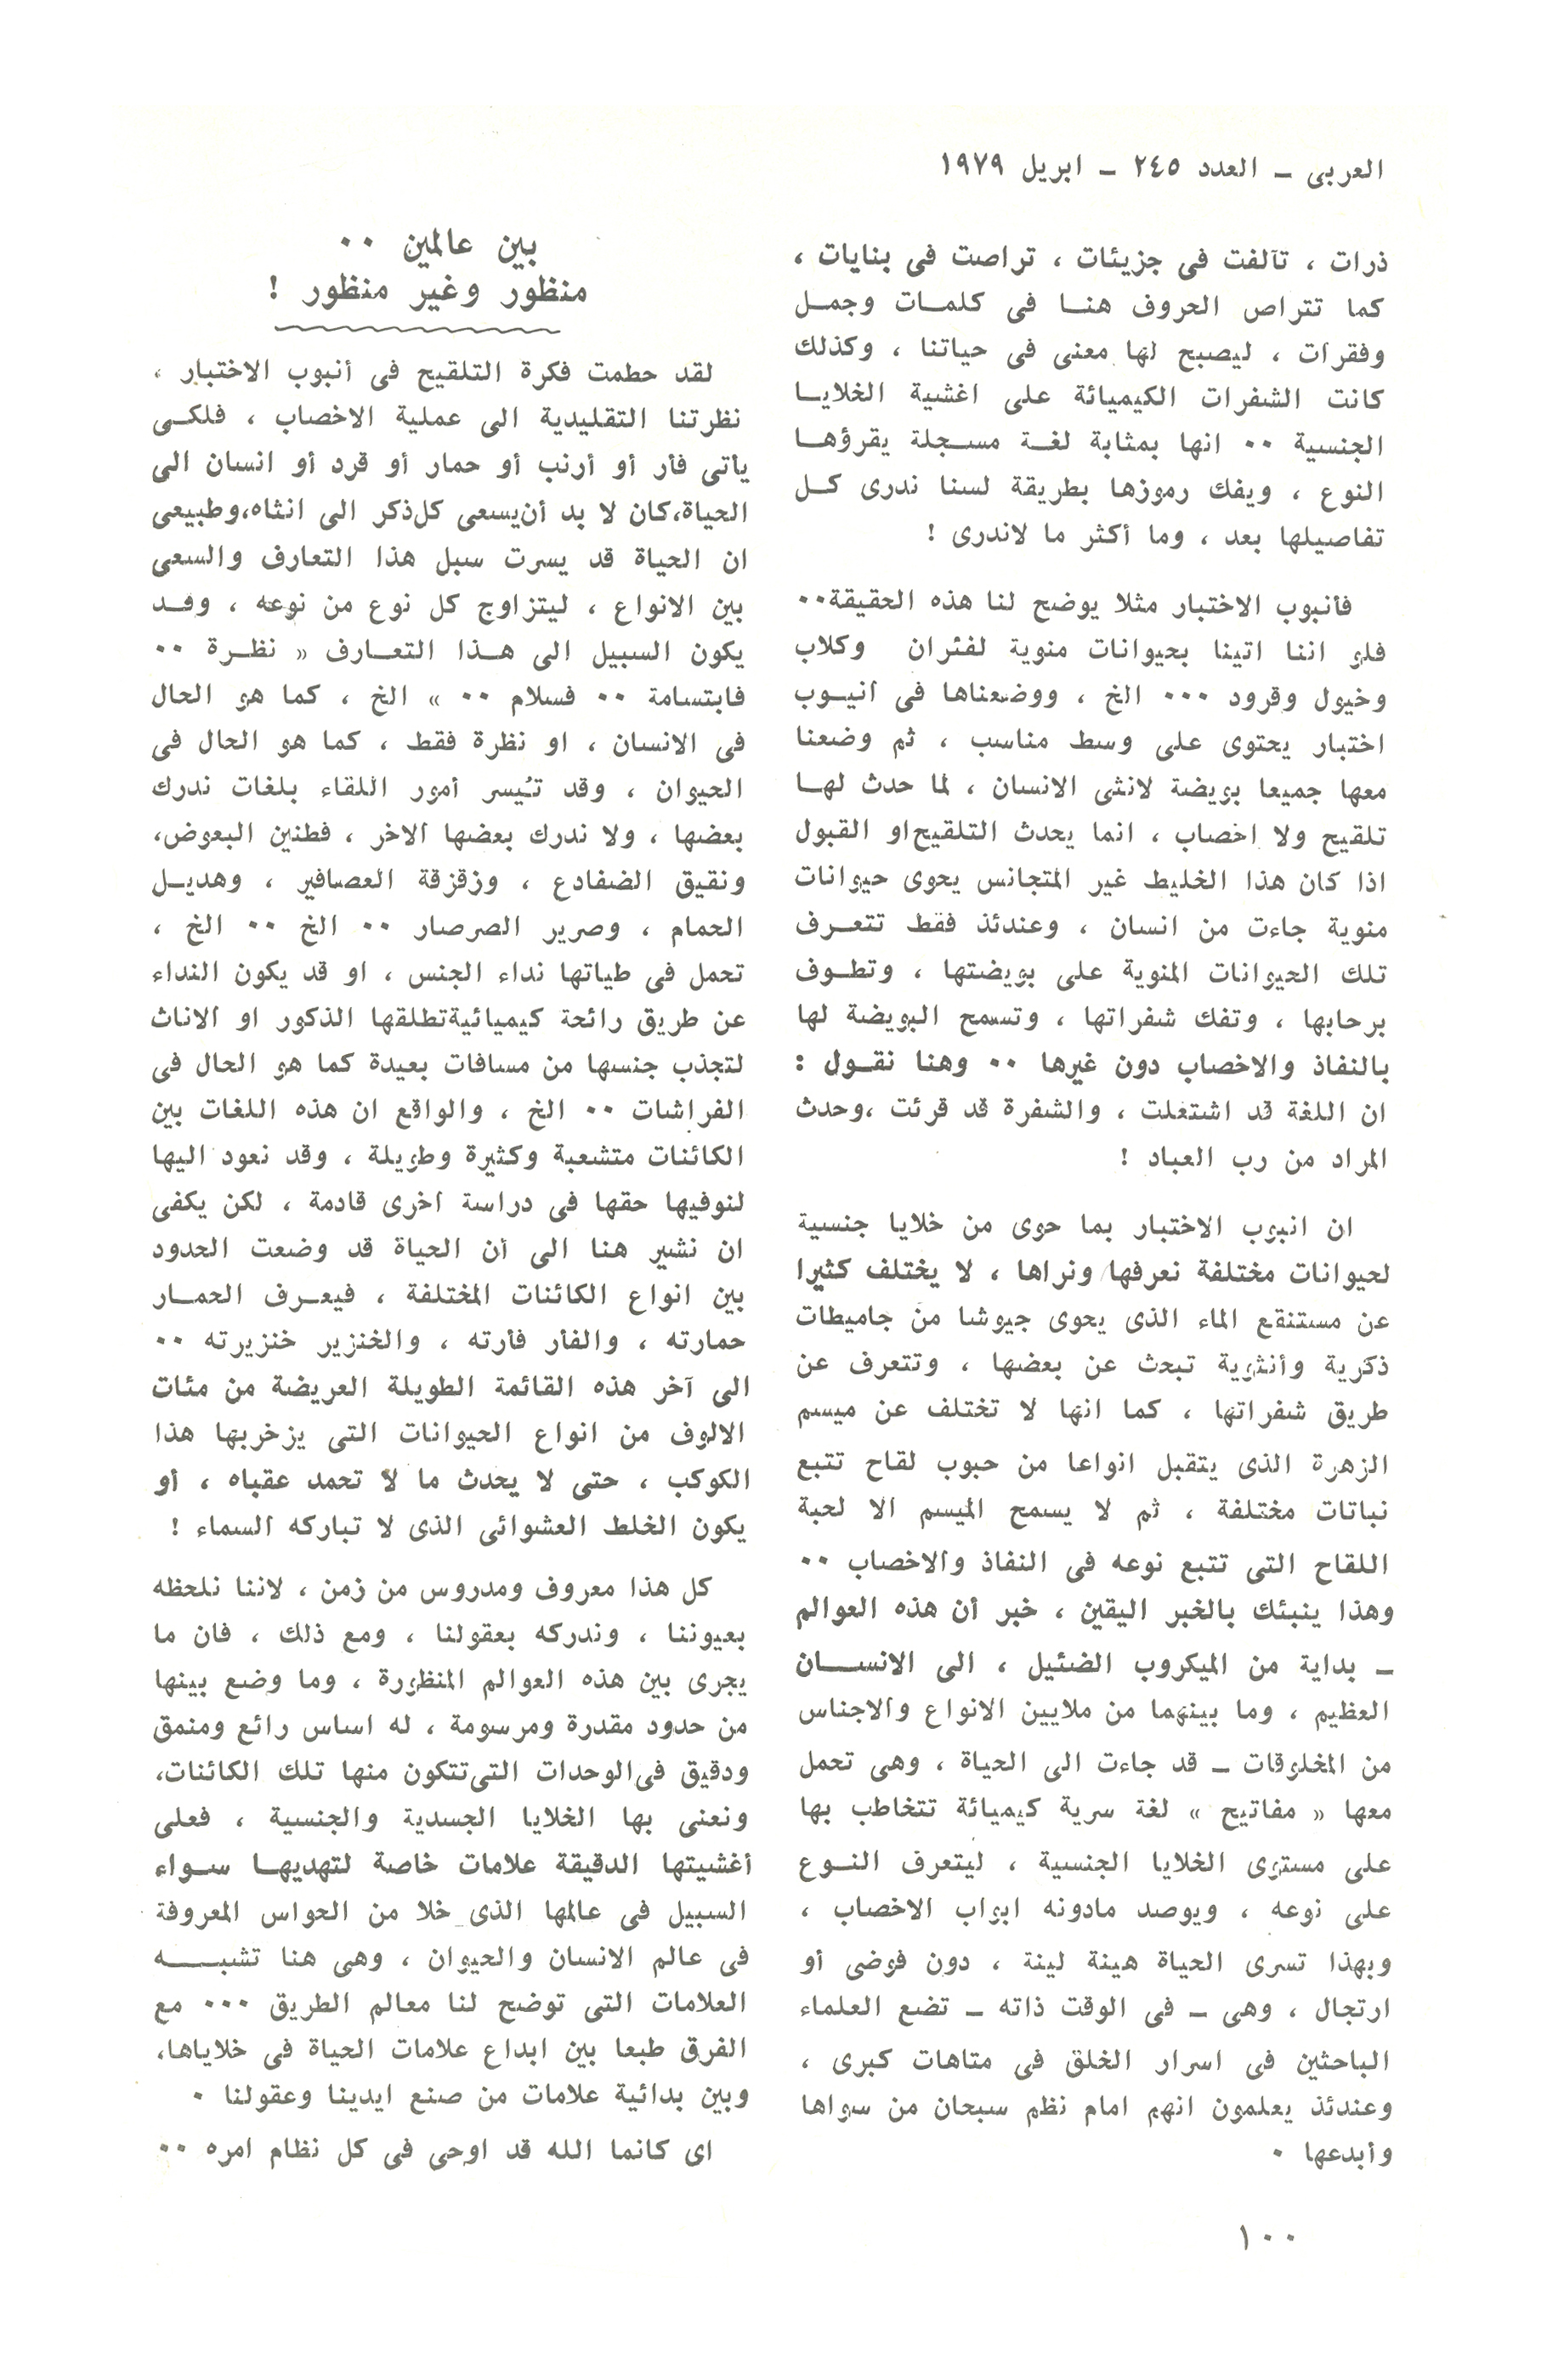 العربى ـ العدد ٢٤٥ ـ ابريل ١٩٧٩
ذرات ، تآلفت فى جزيئات ، تراصت فى بنايات ،
كما تتراص الحروف هنا فى كلمات وجمل
وفقرات ، ليصبح لها معنى فى حياتنا ، وكذلك
كانت الشفرات الكيميائة على اغشية الخلايا
الجنسية ٠٠ انها بمثابة لغة مسجلة يقرؤها
النوع ، ويفك رموزها بطريقة لسنا ندرى كل
تفاصيلها بعد ، وما أكثر ما لاندرى !
فأنبوب الاختبار مثلا يوضح لنا هذه الحقيقة٠٠
فلو اننا اتينا بحيوانات منوية لفئران وكلاب
وخيول وقرود ٠٠٠ الخ ، ووضعناها فى أنبوب
اختبار يحتوى على وسط مناسب ، ثم وضعنا
معها جميعا بويضة لانثى الانسان ، لما حدث لها
تلقيح ولا اخصاب ، انما يحدث التلقيح او القبول
اذا كان هذا الخليط غير المتجانس يحوى حيوانات
منوية جاءت من انسان ، وعندئذ فقط تتعرف
تلك الحيوانات المنوية على بويضتها ، وتطوف
برحابها ، وتفك شفراتها ، وتسمح البويضة لها
بالنفاذ والاخصاب دون غيرها ٠٠ وهنا نقول :
ان اللغة قد اشتغلت ، والشفرة قد قرئت ،وحدث
المراد من رب العباد !
ان انبوب الاختبار بما حوى من خلايا جنسية
لحيوانات مختلفة نعرفها ونراها ، لا يختلف كثيرا
عن مستنقع الماء الذى يحوى جيوشا من جاميطات
ذكرية وأنثوية تبحث عن بعضها ، وتتعرف عن
طريق شفراتها ، كما انها لا تختلف عن ميسم
الزهرة الذى يتقبل انواعا من حبوب لقاح تتبع
نباتات مختلفة ، ثم لا يسمح الميسم الا لحبة
اللقاح التى تتبع نوعه فى النفاذ والاخصاب ٠٠
وهذا ينبئك بالخبر اليقين ، خبر أن هذه العوالم
ـ بداية من الميكروب الضئيل ، الى الانسان
العظيم ، وما بينهما من ملايين الانواع والاجناس
من المخلوقات ـ قد جاءت الى الحياة ، وهى تحمل
معها « مفاتيح » لغة سرية كيميائة تتخاطب بها
على مستوى الخلايا الجنسية ، ليتعرف النوع
على نوعه ، ويوصد مادونه ابواب الاخصاب ،
وبهذا تسرى الحياة هينة لينة ، دون فوضى أو
ارتجال ، وهى ـ فى الوقت ذاته ـ تضع العلماء
الباحثين فى اسرار الخلق فى متاهات كبرى ،
وعندئذ يعلمون انهم امام نظم سبحان من سواها
وأبدعها ٠
بين عالمين ٠٠
منظور وغير منظور !
لقد حطمت فكرة التلقيح فى أنبوب الاختبار ،
نظرتنا التقليدية الى عملية الاخصاب ، فلكى
يأتى فأر أو أرنب أو حمار أو قرد أو انسان الى
الحياة،كان لا بد أن يسعى كل ذكر الى انثاه،وطبيعى
ان الحياة قد يسرت سبل هذا التعارف والسعى
بين الانواع ، ليتزاوج كل نوع من نوعه ، وقد
يكون السبيل الى هذا التعارف « نظرة ٠٠
فابتسامة ٠٠ فسلام ٠٠ » الخ ، كما هو الحال
فى الانسان ، او نظرة فقط ، كما هو الحال فى
الحيوان ، وقد تيسر أمور اللقاء بلغات ندرك
بعضها ، ولا ندرك بعضها الاخر ، فطنين البعوض،
ونقيق الضفادع ، وزقزقة العصافير ، وهديل
الحمام ، وصرير الصرصار ٠٠ الخ ٠٠ الخ ،
تحمل فى طياتها نداء الجنس ، او قد يكون النداء
عن طريق رائحة كيميائية تطلقها الذكور او الاناث
لتجذب جنسها من مسافات بعيدة كما هو الحال فى
الفراشات ٠٠ الخ ، والواقع ان هذه اللغات بين
الكائنات متشعبة وكثيرة وطويلة ، وقد نعود اليها
لنوفيها حقها فى دراسة اخرى قادمة ، لكن يكفى
ان نشير هنا الى أن الحياة قد وضعت الحدود
بين انواع الكائنات المختلفة ، فيعرف الحمار
حمارته ، والفأر فأرته ، والخنزير خنزيرته ٠٠
الى آخر هذه القائمة الطويلة العريضة من مئات
الالوف من انواع الحيوانات التى يزخربها هذا
الكوكب ، حتى لا يحدث ما لا تحمد عقباه ، أو
يكون الخلط العشوائى الذى لا تباركه السماء !
كل هذا معروف ومدروس من زمن ، لاننا نلحظه
بعيوننا ، وندركه بعقولنا ، ومع ذلك ، فان ما
يجرى بين هذه العوالم المنظورة ، وما وضع بينها
من حدود مقدرة ومرسومة ، له اساس رائع ومنمق
ودقيق فى الوحدات التى تتكون منها تلك الكائنات،
ونعنى بها الخلايا الجسدية والجنسية ، فعلى
أغشيتها الدقيقة علامات خاصة لتهديها سواء
السبيل فى عالمها الذى خلا من الحواس المعروفة
فى عالم الانسان والحيوان ، وهى هنا تشبه
العلامات التى توضح لنا معالم الطريق ٠٠٠ مع
الفرق طبعا بين ابداع علامات الحياة فى خلاياها،
وبين بدائية علامات من صنع ايدينا وعقولنا ٠
اى كانما الله قد اوحى فى كل نظام امره ٠٠
١٠٠